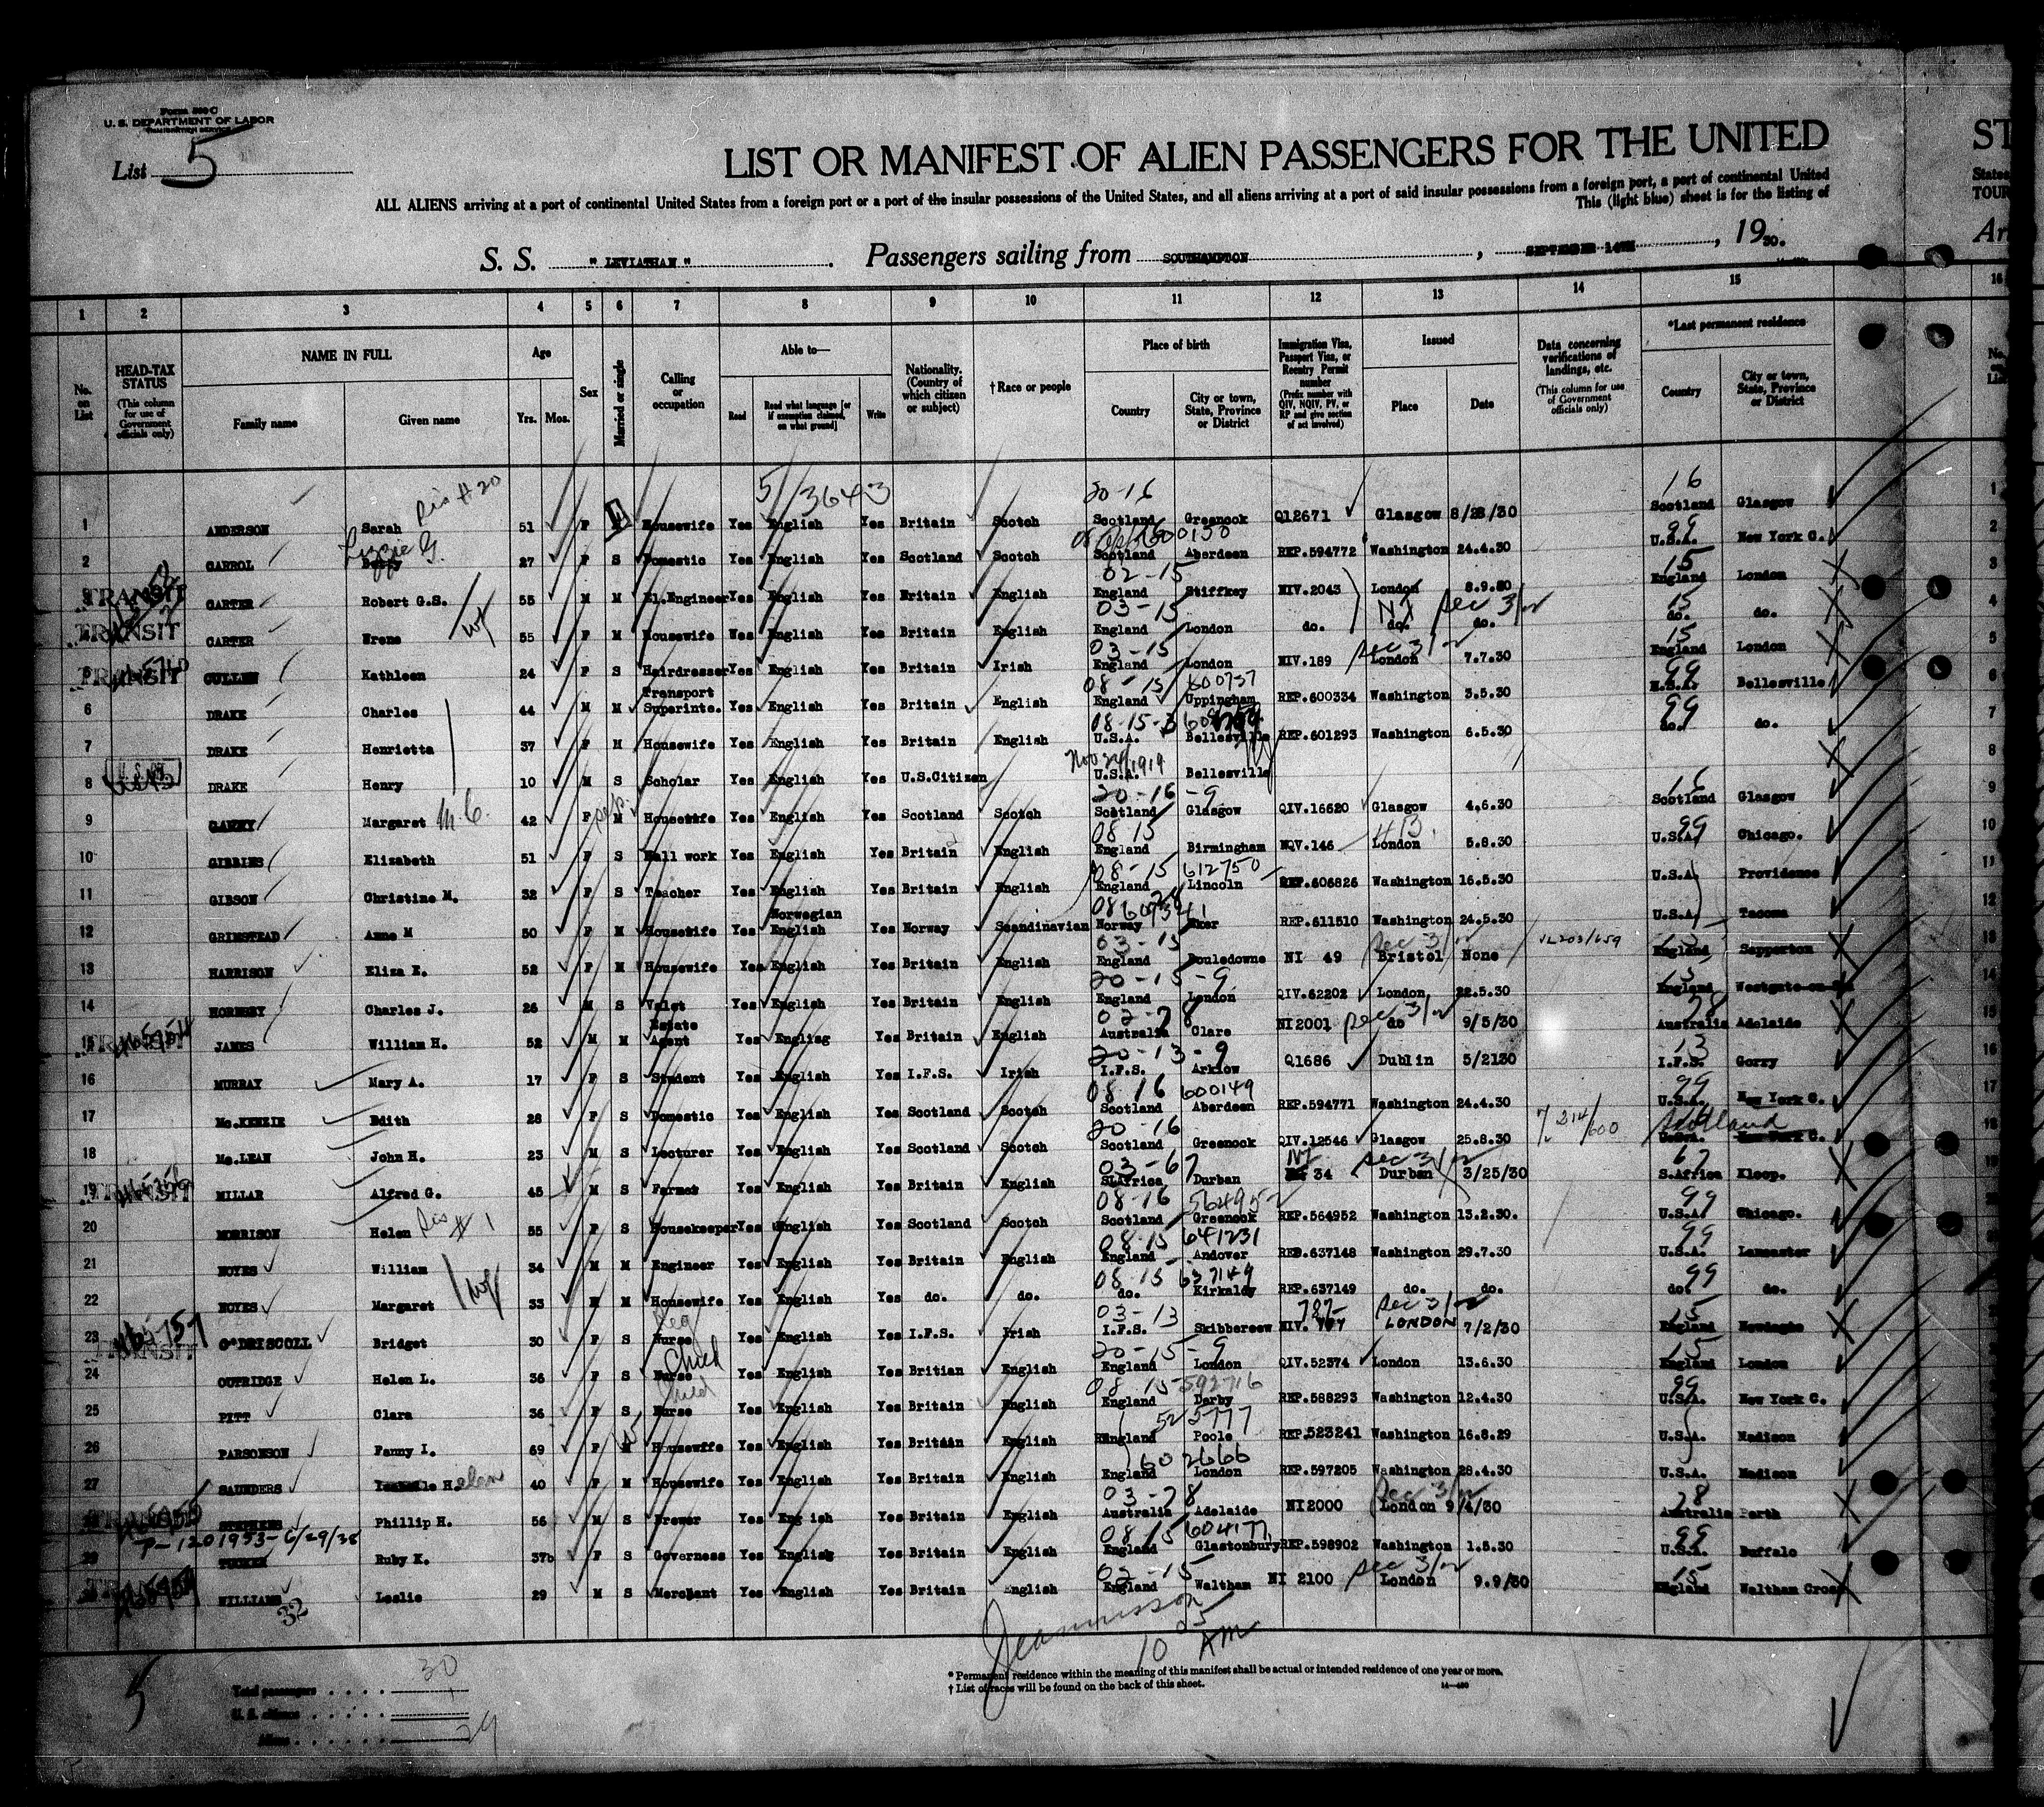 Form 500 C
U. S. DEPARTMENT OF LABOR
IMMIGRATION SERVICE
List 5
LIST OR MANIFEST OF ALIEN PASSENGERS FOR THE UNITED
ST
ALL ALIENS arriving at a port of continental United States from a foreign port or a port of the insular possessions of the United States, and all aliens arriving at a port of said insular possessions from a foreign port, a port of continental United
States
This (light blue) sheet is for the listing of
TOUR
S. S. "LEVIATHAN". Passengers sailing from SOUTHAMPTON, SEPTEMBER 14TH, 1930.
Arr
1 2 3 4 5 6 7 8 9 10 11 12 13 14 15 16
No. on List
HEAD-TAX STATUS (This column for use of Government officials only)
NAME IN FULL Family name Given name
Age Yrs. Mos.
Sex
Married or single
Calling or occupation
Able to— Read Read what language [or if exemption claimed, on what ground] Write
Nationality. (Country of which citizen or subject)
†Race or people
Place of birth Country City or town, State, Province or District
Immigration Visa, Passport Visa, or Reentry Permit number (Prefix number with QIV, NQIV, PV, or RP and give section of act involved)
Issued Place Date
Data concerning verifications of landings, etc. (This column for use of Government officials only)
*Last permanent residence Country City or town, State, Province or District
5/3643 20-16 16
1 ANDERSON Sarah 51 F Housewife Yes English Yes Britain Scotch Scotland Greenock Q12671 Glasgow 8/28/30 Scotland Glasgow 1
Lizzie G. 600150 99
2 CARROL Betty 27 F S Domestic Yes English Yes Scotland Scotch Scotland Aberdeen REP.594772 Washington 24.4.30 U.S.A. New York C. 2
02-15 15
TRANSIT CARTER Robert G.S. 55 M M El.Engineer Yes English Yes Britain English England Stiffkey NIV.2043 London 8.9.30 England London 3
03-15 Sec 3/2 15
TRANSIT CARTER wf 55 F M Housewife Yes English Yes Britain English England London do. do. do. do. do. 4
03-15 Sec 3/2 15
TRANSIT CULLEN Kathleen 24 F S Hairdresser Yes English Yes Britain Irish England London NIV.189 London 7.7.30 England London 5
08-15 600737 99
6 DRAKE Charles 44 M M Transport Superinte. Yes English Yes Britain English England Uppingham REP.600334 Washington 3.5.30 U.S.A. Bellesville 6
08-15-3 99
7 DRAKE Henrietta 37 F M Housewife Yes English Yes Britain English U.S.A. Bellesville REP.601293 Washington 6.5.30 do. do. 7
Nov 24/1919
8 DRAKE Henry 10 M S Scholar Yes English Yes U.S.Citizen U.S.A. Bellesville 8
20-16-9 16
9 Margaret 42 F M Housewife Yes English Yes Scotland Scotch Scotland Glasgow QIV.16620 Glasgow 4.6.30 Scotland Glasgow 9
08 15 99
10 Elizabeth 51 F S Hall work Yes English Yes Britain English England Birmingham NQV.146 London 5.8.30 U.S.A. Chicago. 10
08-15 612750
11 GIBSON Christine M. 32 F S Teacher Yes English Yes Britain English England Lincoln REP.606826 Washington 16.5.30 U.S.A. Providence 11
12 GRIMSTEAD Anne M 50 F M Housewife Yes Norwegian English Yes Norway Scandinavian Norway REP.611510 Washington 24.5.30 U.S.A. Tacoma 12
03-15 Sec 3/2
13 HARRISON Eliza E. 52 F M Housewife Yes English Yes Britain English England Bouledowne NI 49 Bristol None England Sapperton 13
20-15-9 15
14 HORNBY Charles J. 26 M S Valet Yes English Yes Britain English England London QIV.62202 London 22.5.30 England 14
02-78 Sec 3/2 78
15 JAMES William H. 52 M M Estate Agent Yes English Yes Britain English Australia Clare NI2001 do 9/5/30 Australia Adelaide 15
20-13-9 13
16 MURRAY Mary A. 17 F S Student Yes English Yes I.F.S. Irish I.F.S. Arklow Q1686 Dublin 5/2130 I.F.S. Gorry 16
08 16 600149 99
17 Mc.KENZIE Edith 28 F S Domestic Yes English Yes Scotland Scotch Scotland Aberdeen REP.594771 Washington 24.4.30 U.S.A. New York C. 17
20-16 Scotland
18 Mc.LEAN John H. 23 M S Lecturer Yes English Yes Scotland Scotch Scotland Greenock QIV.12546 Glasgow 25.8.30 U.S.A. New York C. 18
03-67 Sec 3/2 67
19 MILLAR Alfred G. 45 M S Farmer Yes English Yes Britain English S.Africa Durban 34 Durban 3/25/30 S.Africa Kloop. 19
08-16 564952 99
20 MORRISON Helen 55 F S Housekeeper Yes English Yes Scotland Scotch Scotland Greenock REP.564952 Washington 13.2.30. U.S.A. Chicago.
08-15 641231 99
21 NOYES William 34 M M Engineer Yes English Yes Britain English England Andover REP.637148 Washington 29.7.30 U.S.A. Lancaster
08 15 637149 99
22 NOYES Margaret wf 33 M Housewife Yes English Yes do. do. do. Kirkaldy REP.637149 do. do. do. do.
03-13 787 Sec 3/2 15
23 O'DRISCOLL Bridget 30 F S Nurse Yes English Yes I.F.S. Irish I.F.S. Skibbereew NIV. LONDON 7/2/30 England
20-15-9 15
24 OUTRIDGE Helen L. 36 F S Nurse Yes English Yes Britian English England London QIV.52374 London 13.6.30 England London
08-15-592716 99
25 PITT Clara 36 F S Nurse Yes English Yes Britain English England Derby REP.588293 Washington 12.4.30 U.S.A. New York C.
525777
26 PARSONSON Fanny I. 69 F Housewife Yes English Yes Britain English England Poole REP.523241 Washington 16.8.29 U.S.A. Madison
602666
27 SAUNDERS 40 F M Housewife Yes English Yes Britain English England London REP.597205 Washington 28.4.30 U.S.A. Madison
03-78 Sec 3/2 78
Phillip H. 56 M S Brewer Yes English Yes Britain English Australia Adelaide NI2000 London 9/4/30 Australia Perth
P-1201953-6/29/38 08-15 604177 99
TUCKER Ruby K. 37 F S Governess Yes English Yes Britain English England Glastonbury REP.598902 Washington 1.5.30 U.S.A. Buffalo
02-15 Sec 3/2 15
WILLIAMS Leslie 29 M S Merchant Yes English Yes Britain English England Waltham NI 2100 London 9.9/30 England Waltham Cross
32
10 05 AM
5
Total passengers 30
U. S. citizens 1
Aliens 29
* Permanent residence within the meaning of this manifest shall be actual or intended residence of one year or more.
† List of races will be found on the back of this sheet.
14—480